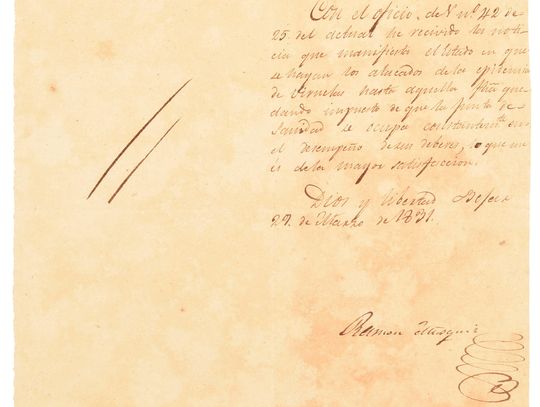 Con el oficio de V nº 42 de
25 del actual he recivido las noti-
cia que manifiesta el Estado en que
se hayan los atacados de la epidemia
de viruelas hasta aquella fha que
dando impuesto de que la junta de
Sanidad se ocupa constantemte en
el desempeño de sus deberes, lo que me
és de la mayor satisfaccion.
Dios y libertad Bejar
29. de Marzo de 1831.
Ramon Musquiz